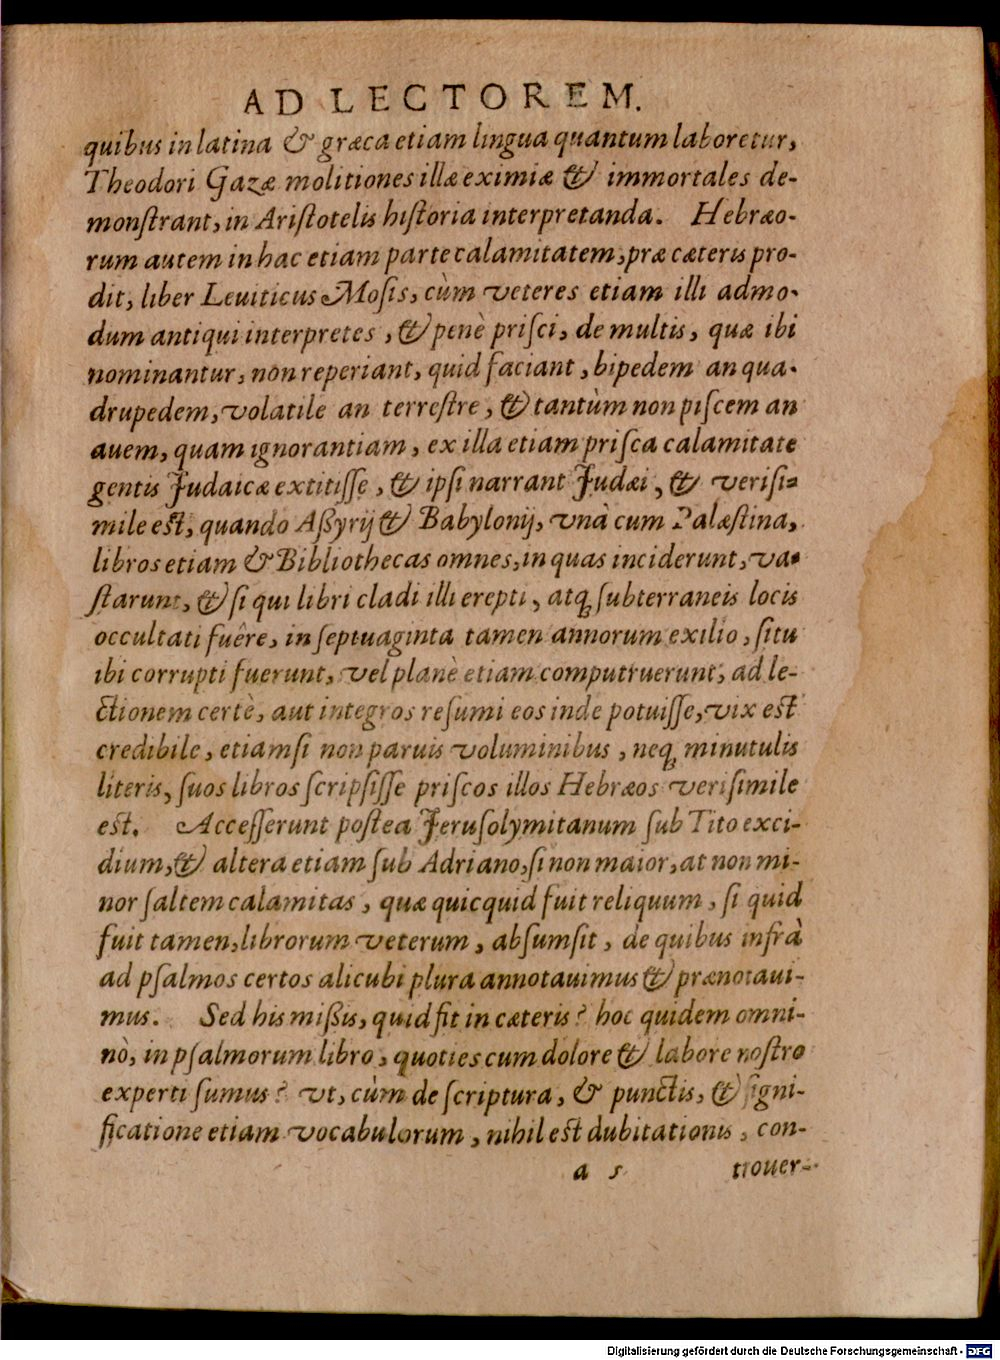 AD LECTOREM.
quibus in latina & græca etiam lingua quantum laboretur,
Theodori Gazæ molitiones illæ eximiæ & immortales de-
monſtrant, in Ariſtotelis hiſtoria interpretanda. Hebræo-
rum autem in hac etiam parte calamitatem, præ cæteris pro-
dit, liber Leuiticus Moſis, cùm veteres etiam illi admo-
dum antiqui interpretes, & penè priſci, de multis, quæ ibi
nominantur, non reperiant, quid faciant, bipedem an qua-
drupedem, volatile an terreſtre, & tantùm non piſcem an
auem, quam ignorantiam, ex illa etiam priſca calamitate
gentis Judaicæ extitiſſe, & ipſi narrant Judæi, & veriſi-
mile eſt, quando Aßyrij & Babylonij, vnà cum Palæſtina,
libros etiam & Bibliothecas omnes, in quas inciderunt, va-
ſtarunt, & ſi qui libri cladi illi erepti, atq; ſubterraneis locis
occultati fuêre, in ſeptuaginta tamen annorum exilio, ſitu
ibi corrupti fuerunt, vel planè etiam computruerunt, ad le-
ctionem certè, aut integros reſumi eos inde potuiſſe, vix eſt
credibile, etiamſi non paruis voluminibus, neq; minutulis
literis, ſuos libros ſcripſiſſe priſcos illos Hebræos veriſimile
eſt. Acceſſerunt poſtea Jeruſolymitanum ſub Tito exci-
dium, & altera etiam ſub Adriano, ſi non maior, at non mi-
nor ſaltem calamitas, quæ quicquid fuit reliquum, ſi quid
fuit tamen, librorum veterum, abſumſit, de quibus infrà
ad pſalmos certos alicubi plura annotauimus & prænotaui-
mus. Sed his mißis, quid fit in cæteris? hoc quidem omni-
nò, in pſalmorum libro, quoties cum dolore & labore noſtro
experti ſumus? vt, cùm de ſcriptura, & punctis, & ſigni-
ficatione etiam vocabulorum, nihil eſt dubitationis, con-
a 5 trouer-
Digitalisierung gefördert durch die Deutsche Forschungsgemeinschaft - DFG